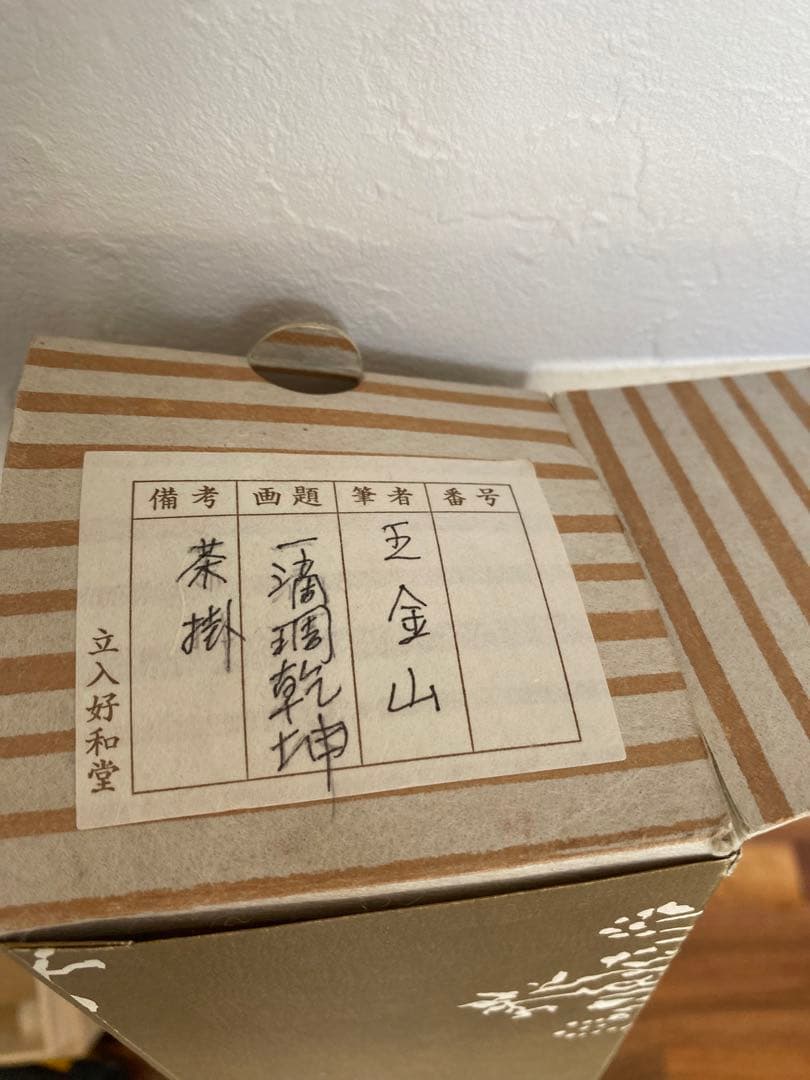 番号
筆者
王金山
画題
一滴潤乾坤
備考
茶掛
立入好和堂